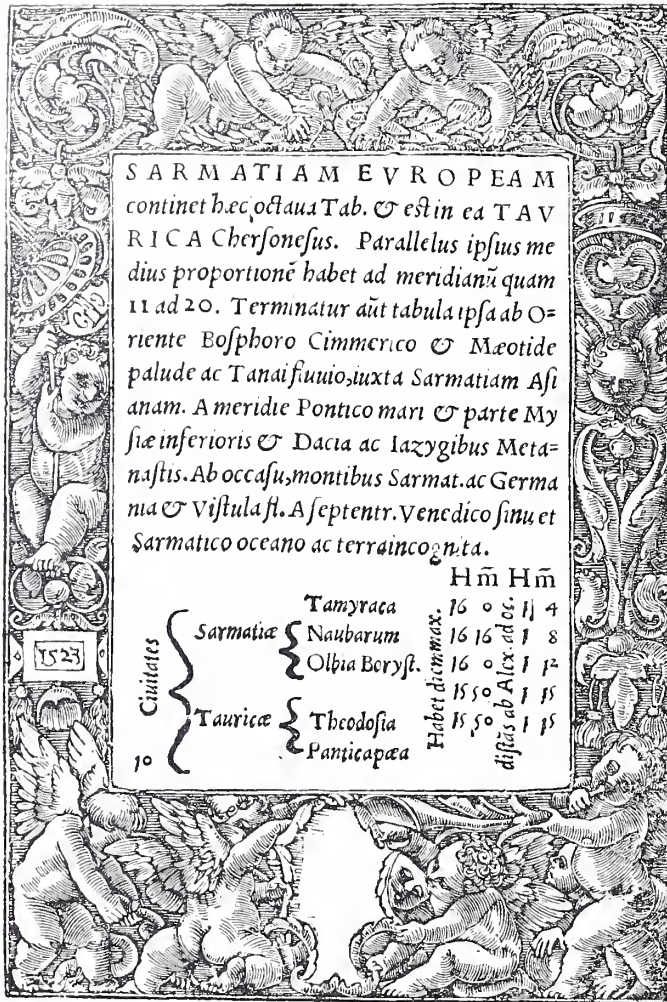 SARMATIAM EVROPEAM
continet hæc octaua Tab. & est in ea TAV
RICA Chersonesus. Parallelus ipsius me
dius proportionē habet ad meridianū quam
11 ad 20. Terminatur aūt tabula ipsa ab O=
riente Bosphoro Cimmerico & Mæotide
palude ac Tanai fluuio, iuxta Sarmatiam Asi
anam. A meridie Pontico mari & parte My
siæ inferioris & Dacia ac Iazygibus Meta=
nastis. Ab occasu, montibus Sarmat. ac Germa
nia & Vistula fl. A septentr. Venedico sinu et
Sarmatico oceano ac terra incognita.
H m̄ H m̄
Ciuitates
10
Sarmatiæ
Tauricæ
Tamyraca
Naubarum
Olbia Boryst.
Theodosia
Panticapæa
Habet diem max.
16 0
16 16
16 0
15 50
15 50
distās ab Alex. ad oc.
1 4
1 8
1 12
1 15
1 15
1523